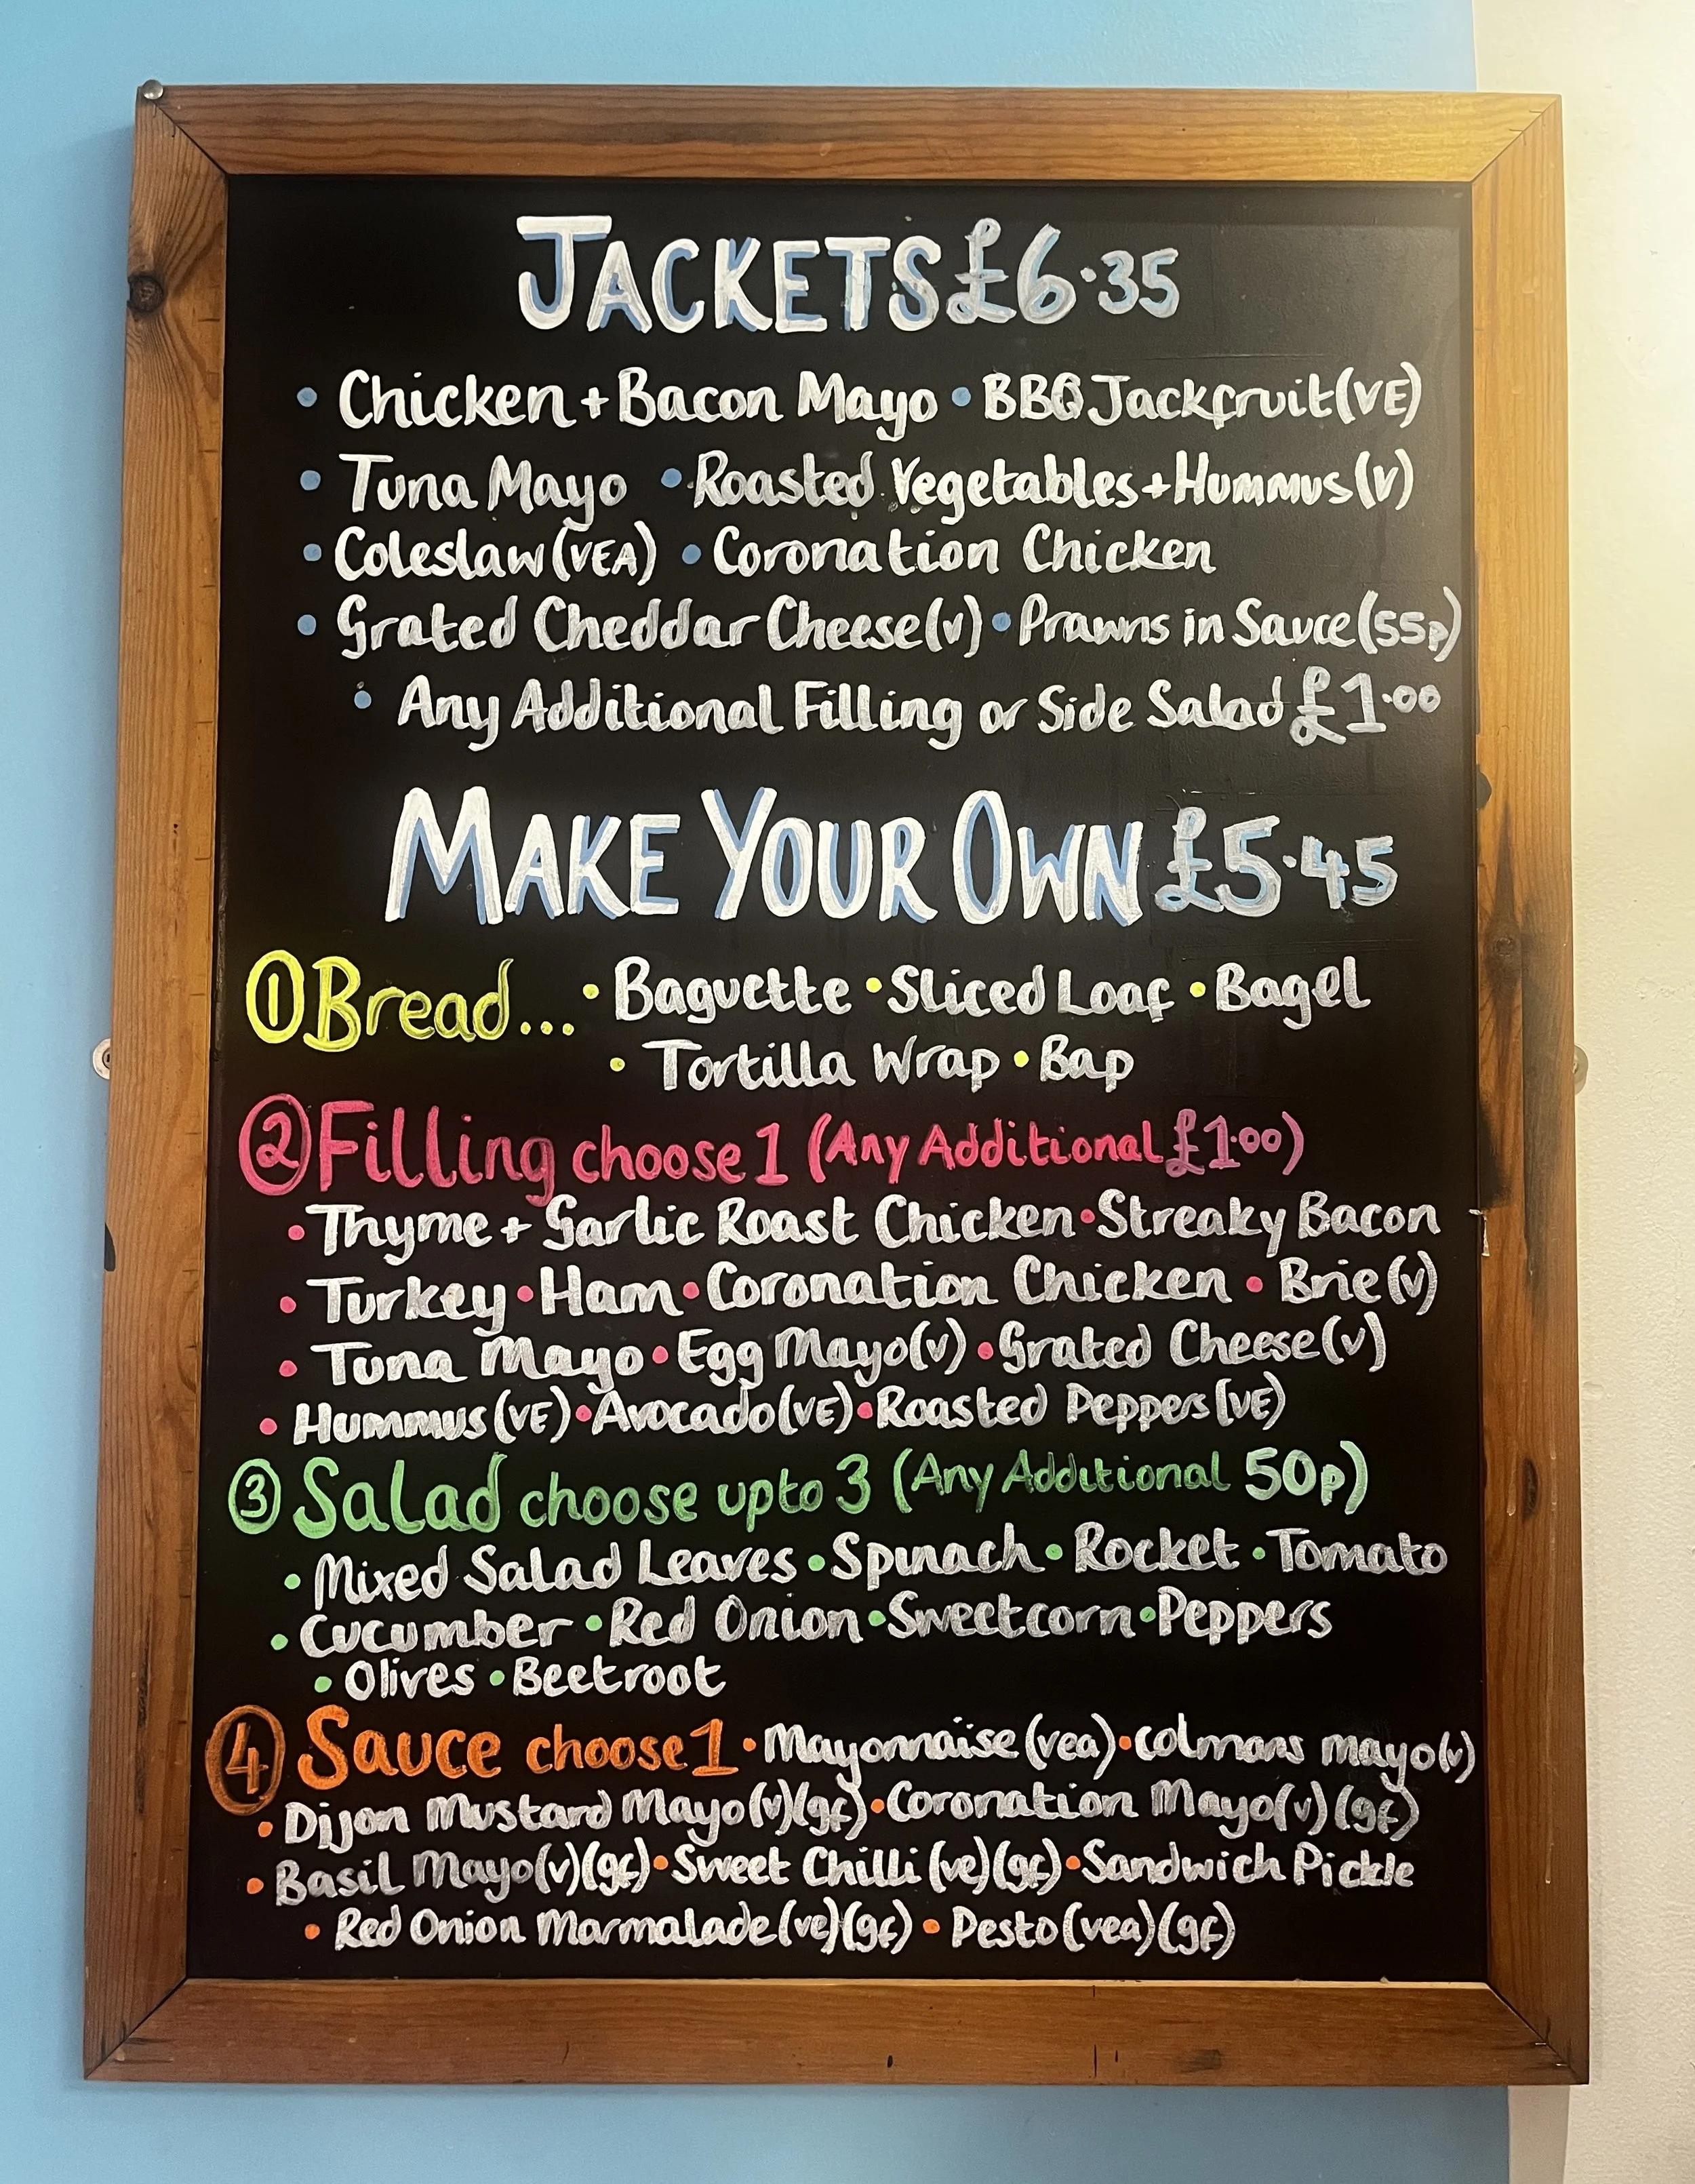 JACKETS £6.35
• Chicken + Bacon Mayo • BBQ Jackfruit (VE)
• Tuna Mayo • Roasted Vegetables + Hummus (V)
• Coleslaw (VEA) • Coronation Chicken
• Grated Cheddar Cheese (v) • Prawns in Sauce (55p)
• Any Additional Filling or Side Salad £1.00
MAKE YOUR OWN £5.45
① Bread... • Baguette • Sliced Loaf • Bagel
• Tortilla Wrap • Bap
② Filling choose 1 (Any Additional £1.00)
• Thyme + Garlic Roast Chicken • Streaky Bacon
• Turkey • Ham • Coronation Chicken • Brie (v)
• Tuna Mayo • Egg Mayo (v) • Grated Cheese (v)
• Hummus (VE) • Avocado (VE) • Roasted Peppers (VE)
③ Salad choose upto 3 (Any Additional 50p)
• Mixed Salad Leaves • Spinach • Rocket • Tomato
• Cucumber • Red Onion • Sweetcorn • Peppers
• Olives • Beetroot
④ Sauce choose 1 • Mayonnaise (vea) • Colmans mayo (v)
• Dijon Mustard Mayo (v) (gf) • Coronation Mayo (v) (gf)
• Basil Mayo (v) (gf) • Sweet Chilli (ve) (gf) • Sandwich Pickle
• Red Onion Marmalade (ve) (gf) • Pesto (vea) (gf)